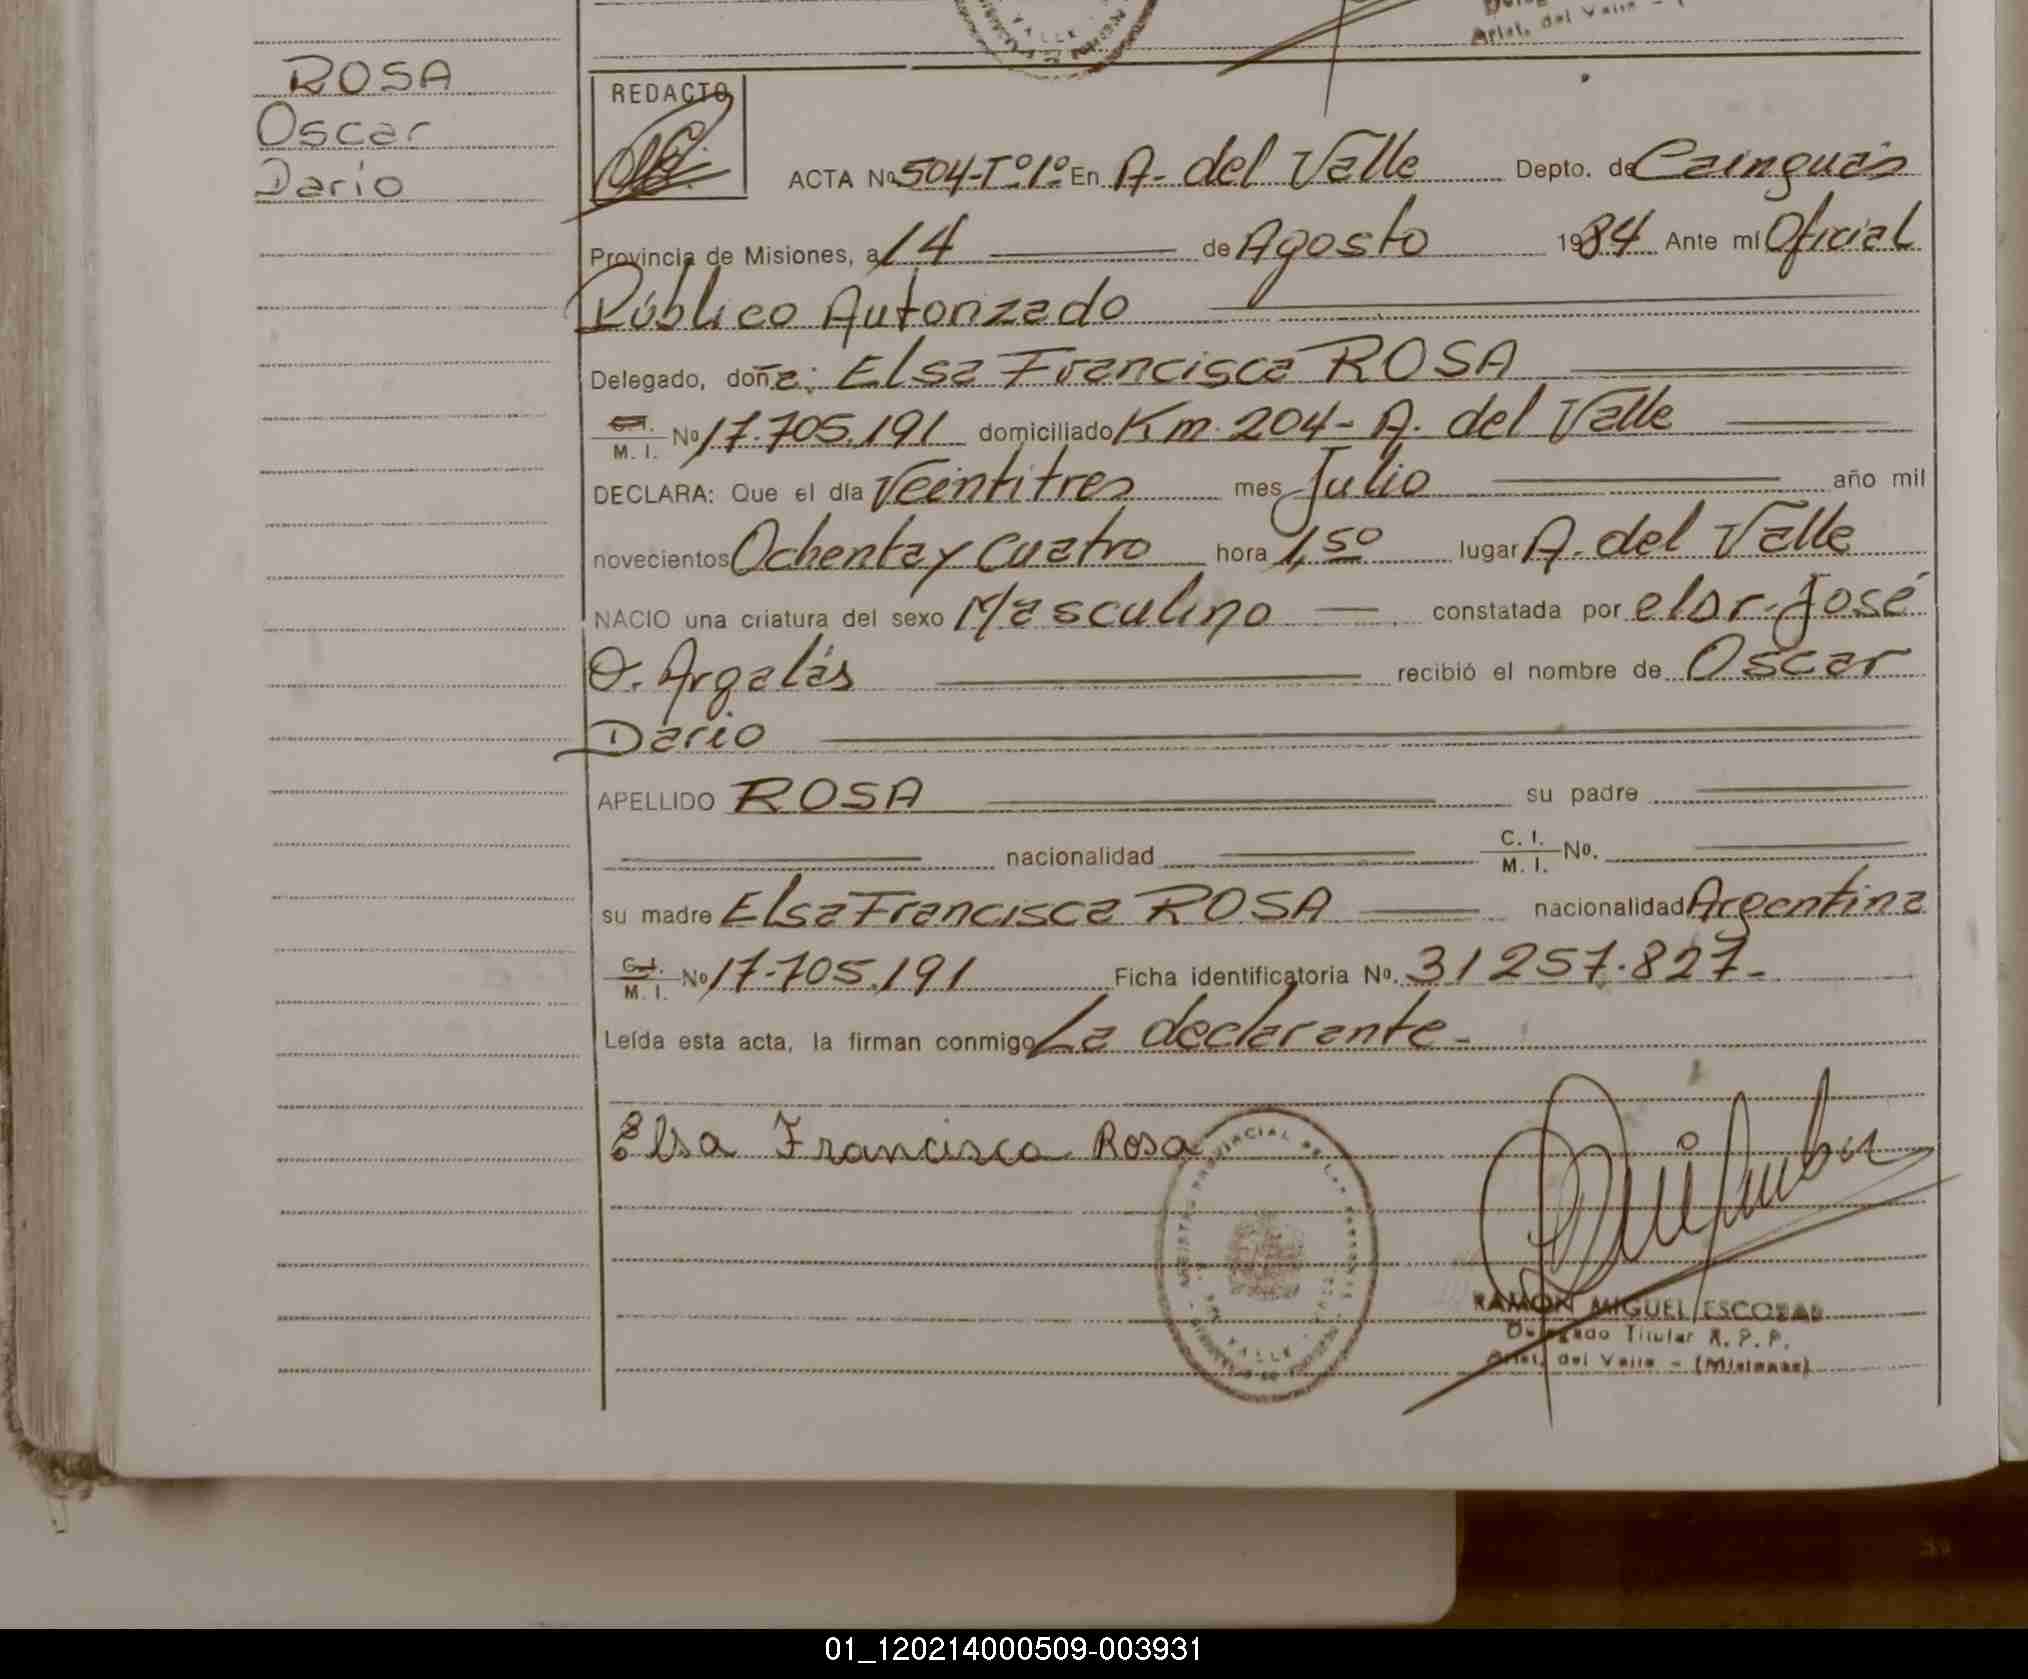 Arist. del Valle - (
ROSA
Oscar
Darío
REDACTO
ACTA Nº 504-Tº1º En A. del Valle Depto. de Cainguás
Provincia de Misiones, a 14 de Agosto 1984 Ante mí Oficial
Público Autorizado
Delegado, doña: Elsa Francisca ROSA
C.I. M. I. Nº 17.705.191 domiciliado Km. 204 - A. del Valle
DECLARA: Que el día Veintitres mes Julio año mil
novecientos Ochenta y Cuatro hora 1,50 lugar A. del Valle
NACIO una criatura del sexo Masculino constatada por el sr. José
O. Argalás recibió el nombre de Oscar
Dario
APELLIDO ROSA su padre
nacionalidad C. I. M. I. Nº.
su madre Elsa Francisca ROSA nacionalidad Argentina
C.I. M. I. Nº 17.705.191 Ficha identificatoria Nº. 31257.827.-
Leída esta acta, la firman conmigo La declarante.-
Elsa Francisca Rosa
RAMON MIGUEL ESCOBAR
Delegado Titular R. P. P.
Arist. del Valle - (Misiones)
01_120214000509-003931